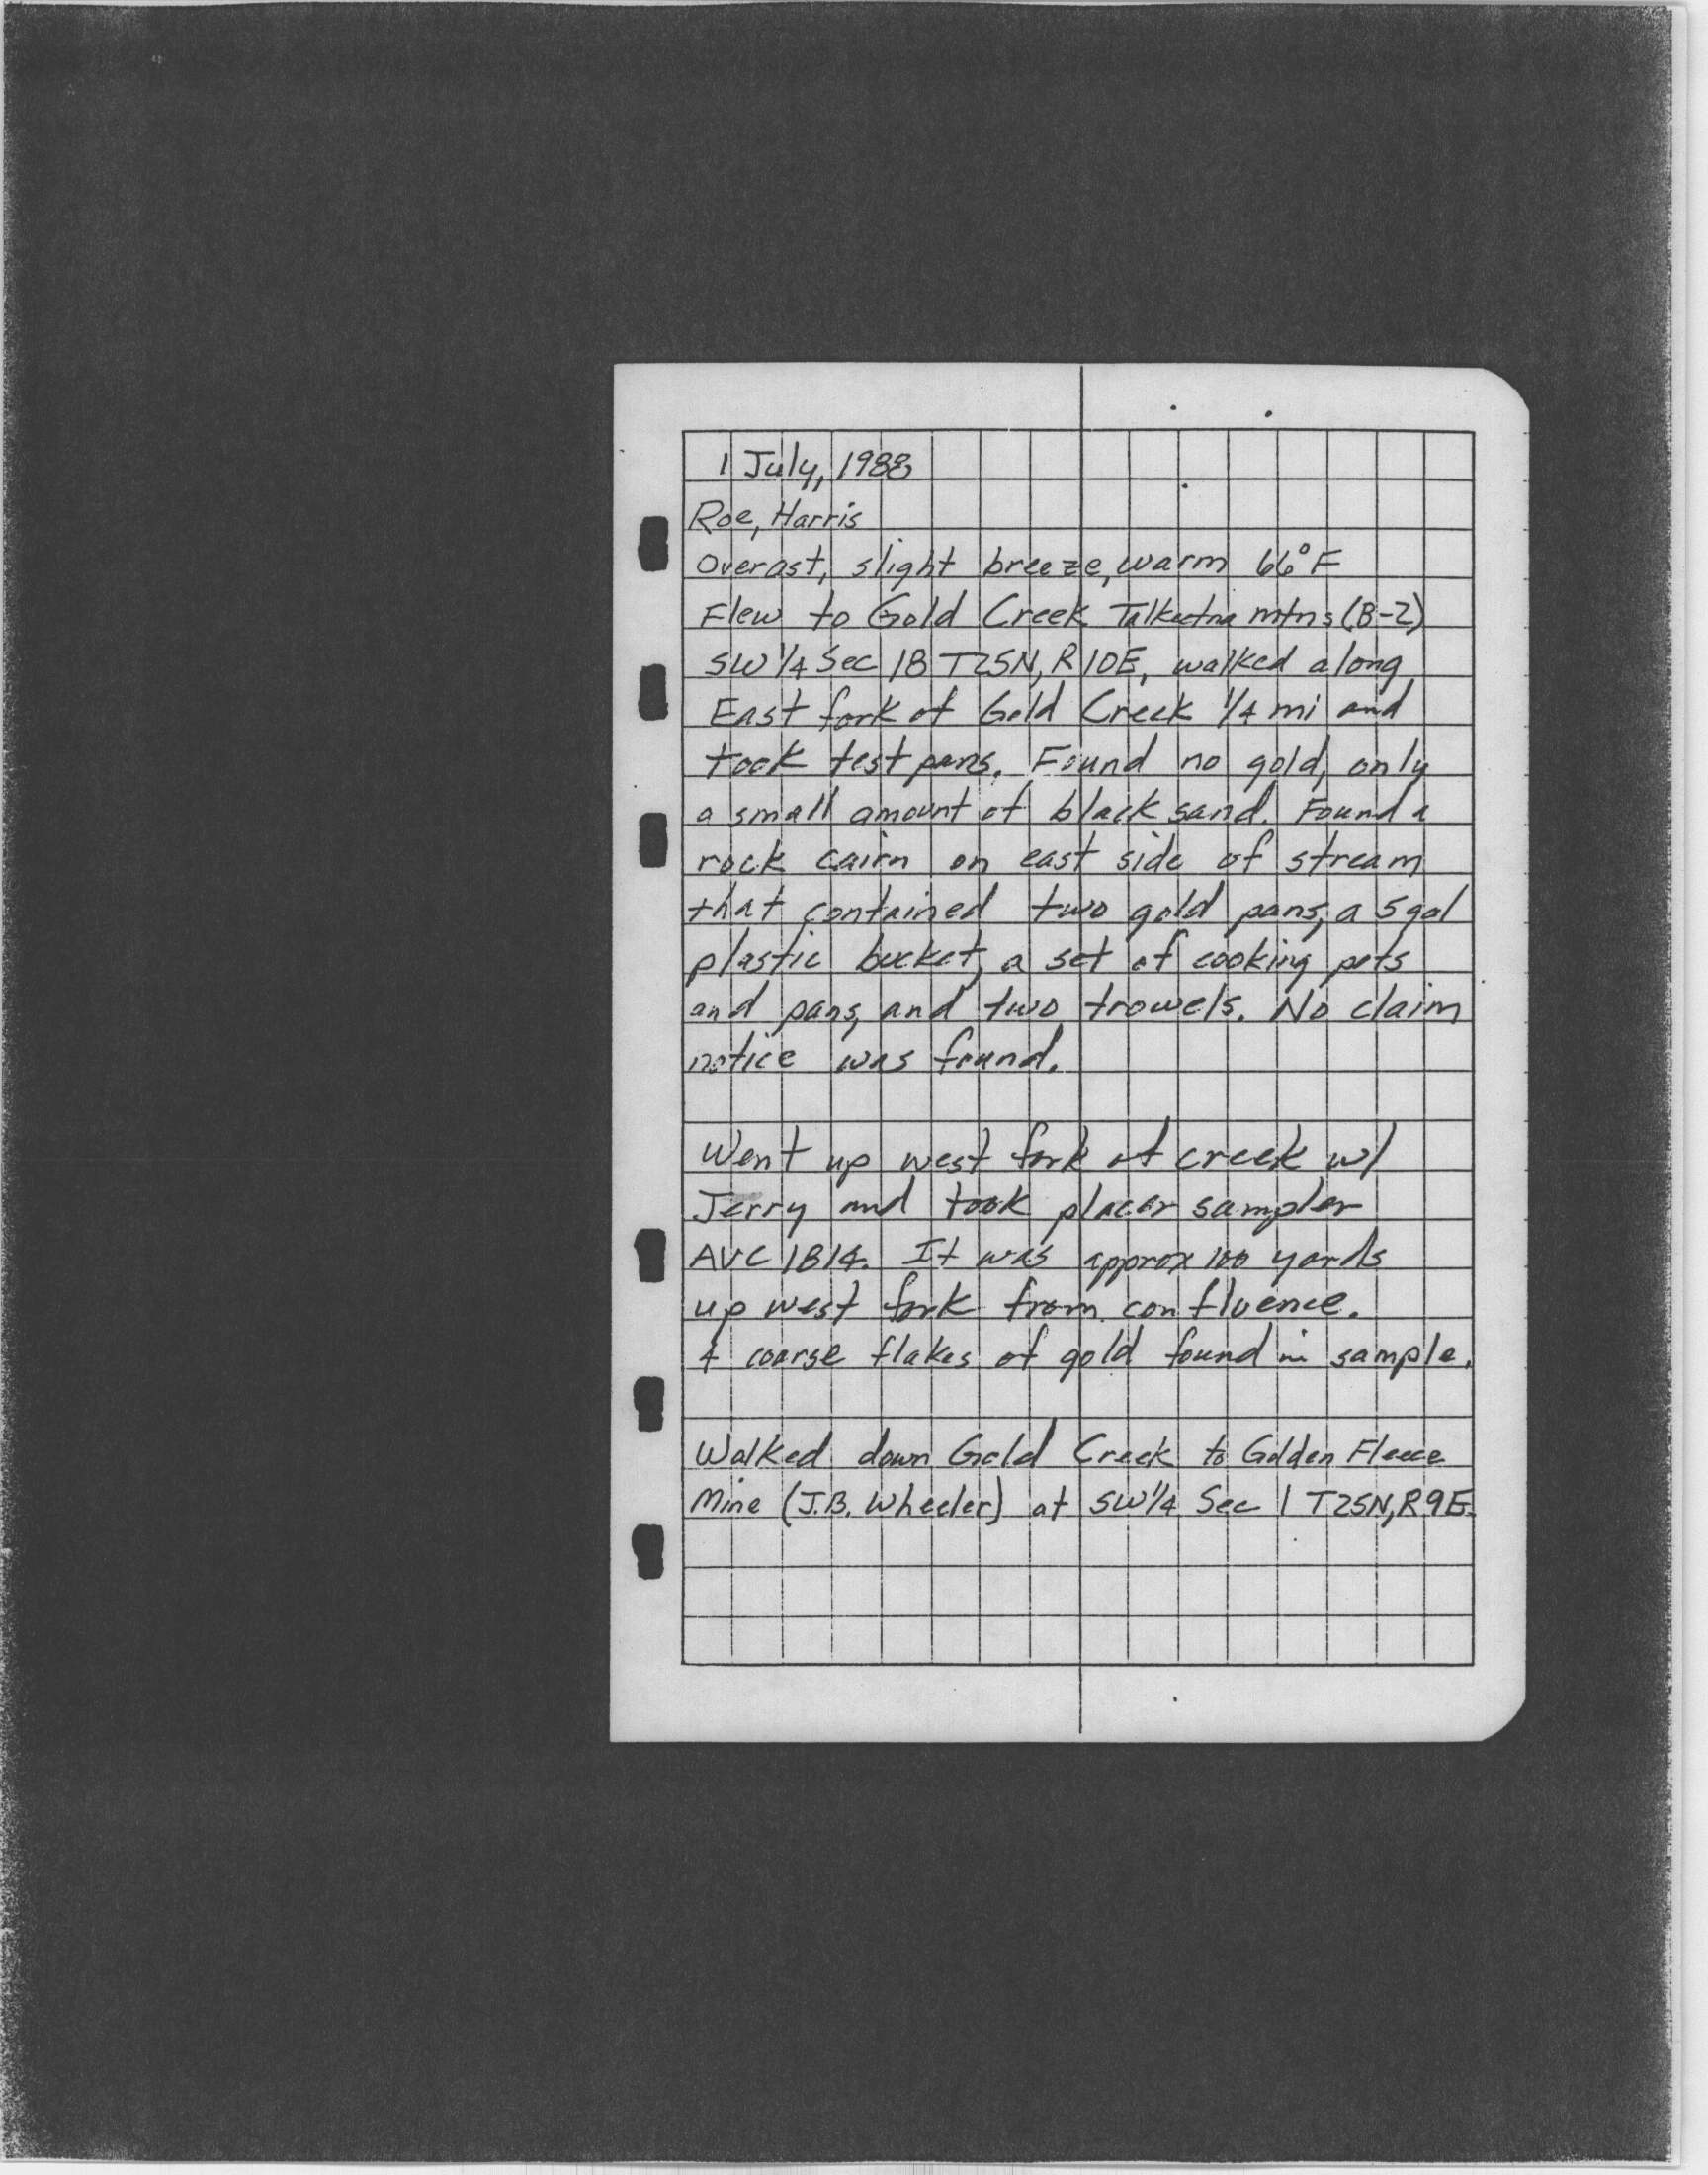 1 July, 1988
Roe, Harris
Overast, slight breeze, warm 66°F
Flew to Gold Creek Talkeetna mtns (B-2)
SW 1/4 Sec 18 T25N, R10E, walked along
East fork of Gold Creek 1/4 mi and
took test pans. Found no gold, only
a small amount of black sand. Found a
rock cairn on east side of stream
that contained two gold pans, a 5 gal
plastic bucket, a set of cooking pots
and pans, and two trowels. No claim
notice was found.
Went up west fork of creek w/
Jerry and took placer sampler
AVC 1814. It was approx 100 yards
up west fork from confluence.
4 coarse flakes of gold found in sample.
Walked down Gold Creek to Golden Fleece
Mine (J.B. Wheeler) at SW 1/4 Sec 1 T25N, R9E.